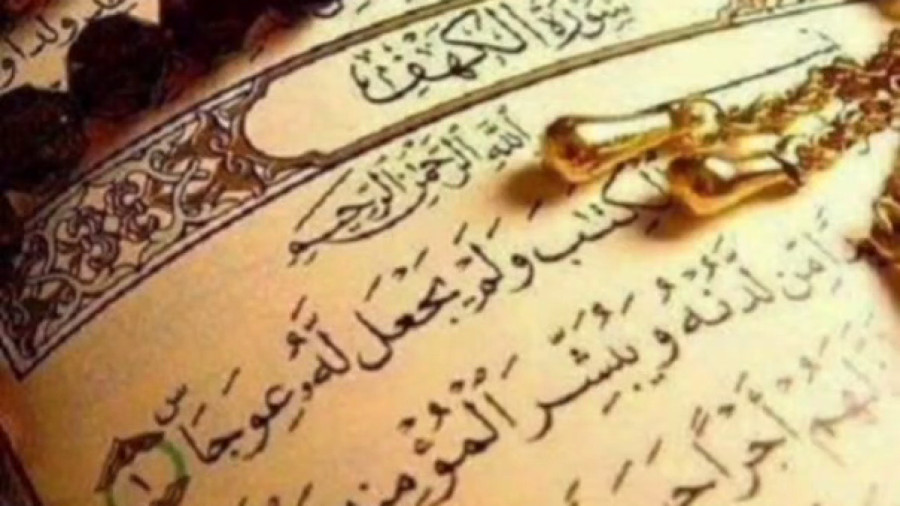 ولدا و
سورة الكهف
الله الرحمن الرحيم
الكتب ولم يجعل له عوجا ۜ ١
من لدنه ويبشر المؤمن
لهم أجرا ح